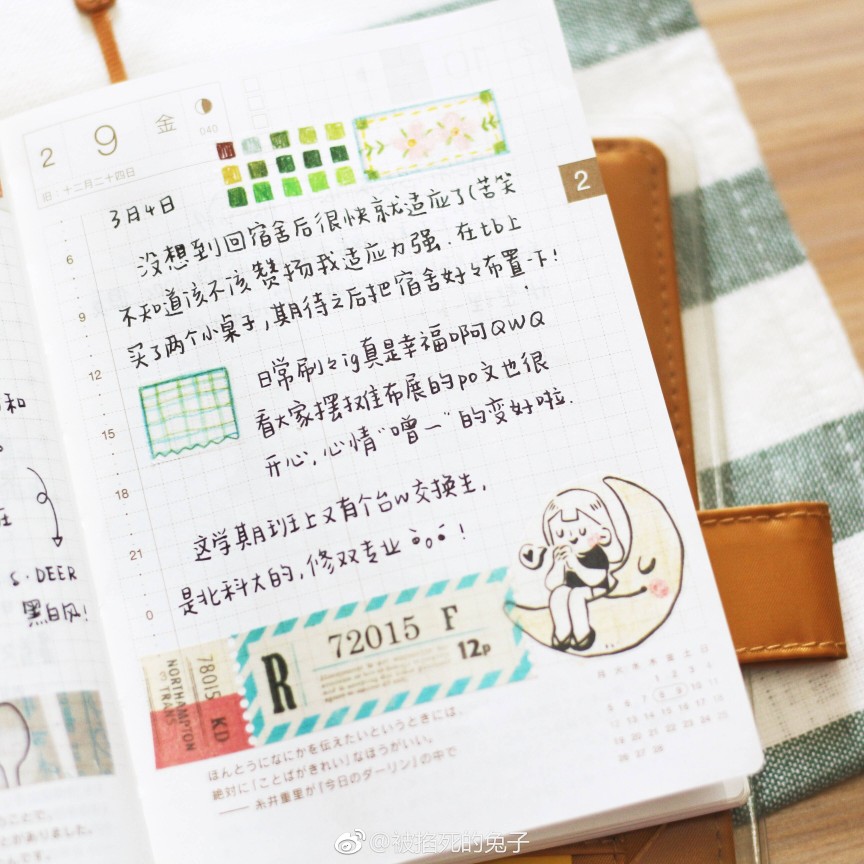 2 9 金
040
旧・十二月二十四日
2
3月4日
没想到回宿舍后很快就适应了(苦笑
不知道该不该赞扬我适应力强.在tb上
买了两个小桌子,期待之后把宿舍好々布置一下!
日常刷々ig真是幸福啊QWQ
看大家摆拍布展的po文也很
开心,心情"噌一"的变好啦.
这学期班上又有个台w交换生,
是北科大的,修双专业 !
6
9
12
15
18
21
0
和
S·DEER
黑白风!
72015 F
R
12p
78015 KD
3
NORTHAMPTON
TRANS
月 火 水 木 金 土 日
1 2 3 4
5 6 7 8 9 10 11
12 13 14 15 16 17 18
19 20 21 22 23 24 25
26 27 28
ほんとうになにかを伝えたいというときには、
絶対に「ことばがきれい」なほうがいい。
——糸井重里が『今日のダーリン』の中で
うことで、
とがありました。
んです。
@被掐死的兔子